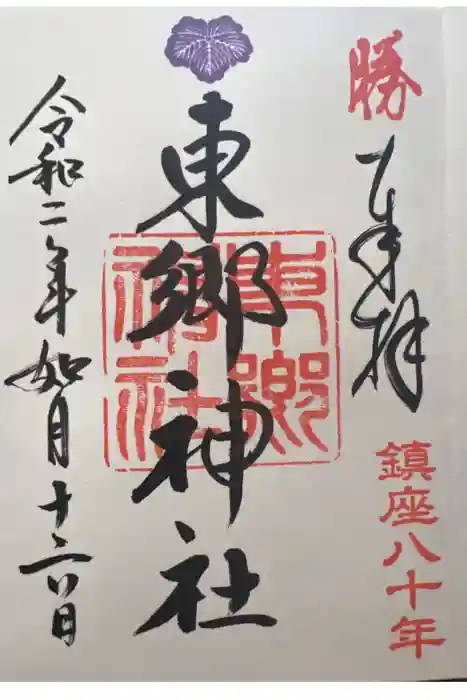 勝
奉拝
鎮座八十年
東郷神社
東郷
神社
令和二年如月十六日